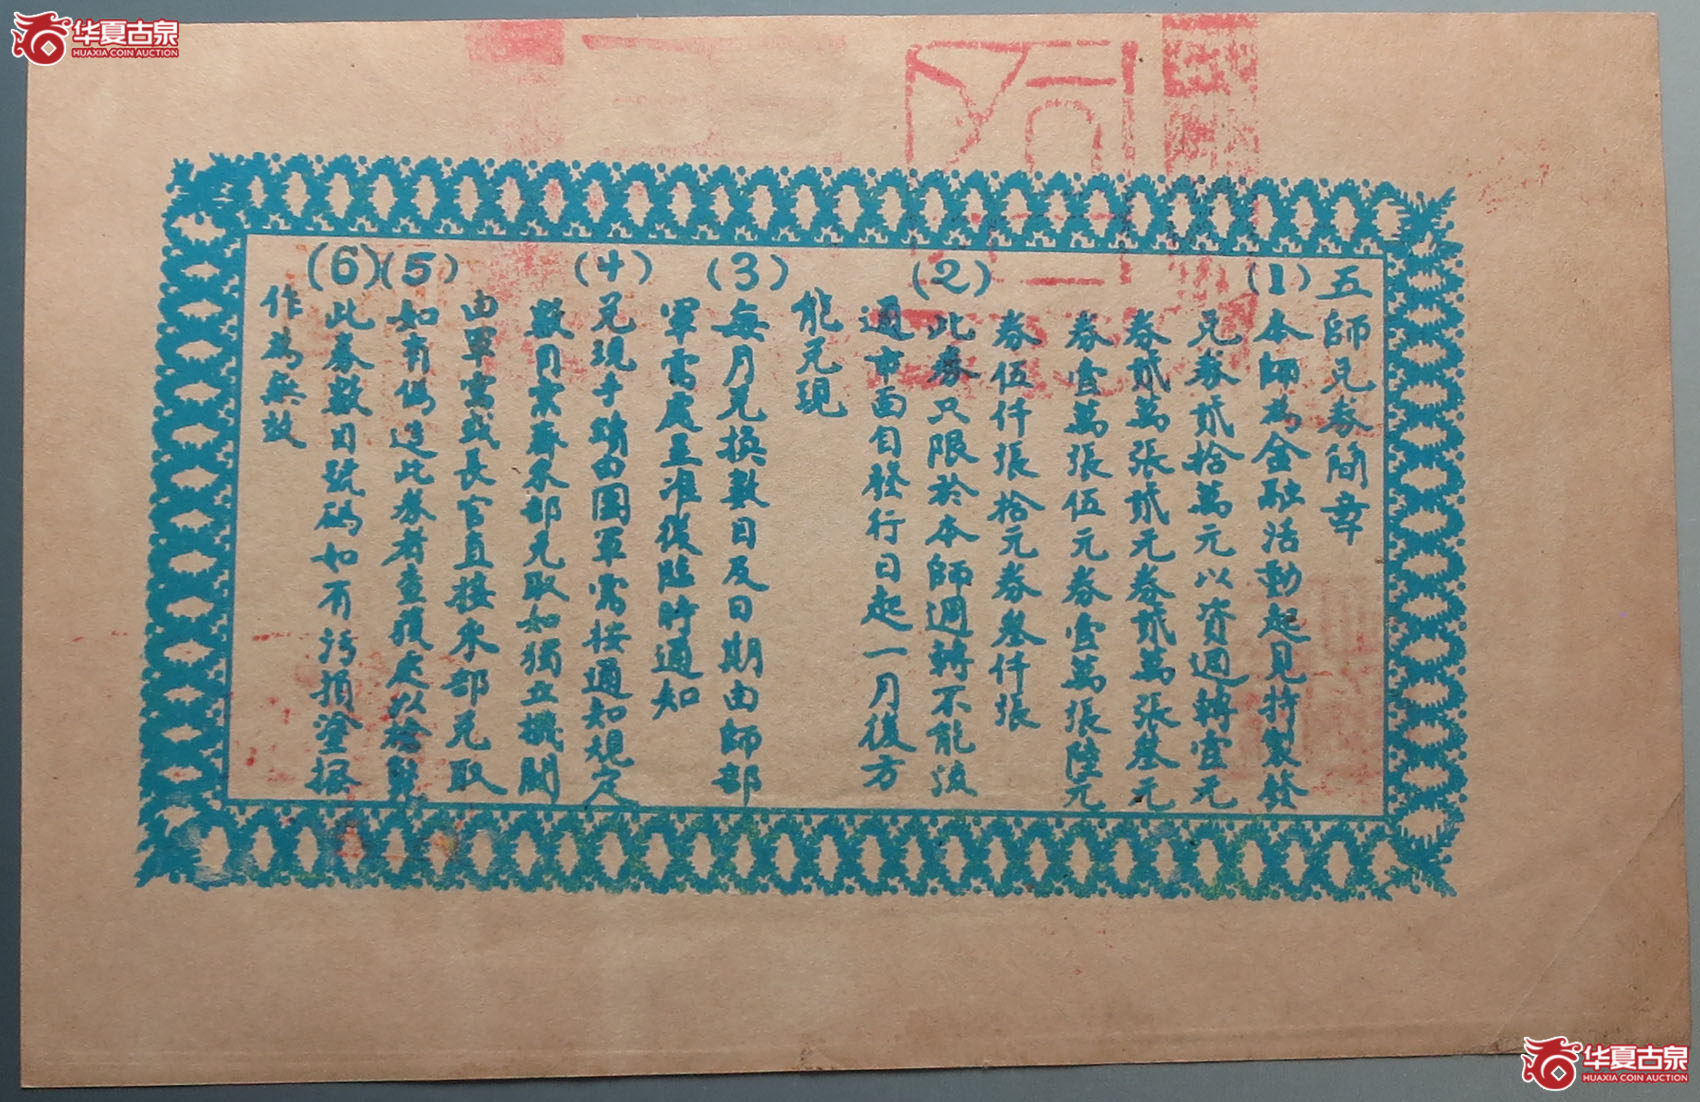 华夏古泉
HUAXIA COIN AUCTION
五師兑券簡章
(1)本師為金融活動起見特製發
兑券貳拾萬元以資週轉壹元
券貳萬張貳元券貳萬張叁元
券壹萬張伍元券壹萬張陸元
券伍仟張拾元券叁仟張
(2)此券只限於本師週轉不能流
通市面自發行日起一月後方
能兑現
(3)每月兑換數目及日期由師部
軍需處呈准後臨時通知
(4)兑現手續由團軍需按通知規定
數目彙齊來部兑取如獨立機関
由軍需或長官直接來部兑取
(5)如有僞造此券者查獲處以槍斃
(6)此券數目號碼如有污損塗搽
作為無效
华夏古泉
HUAXIA COIN AUCTION